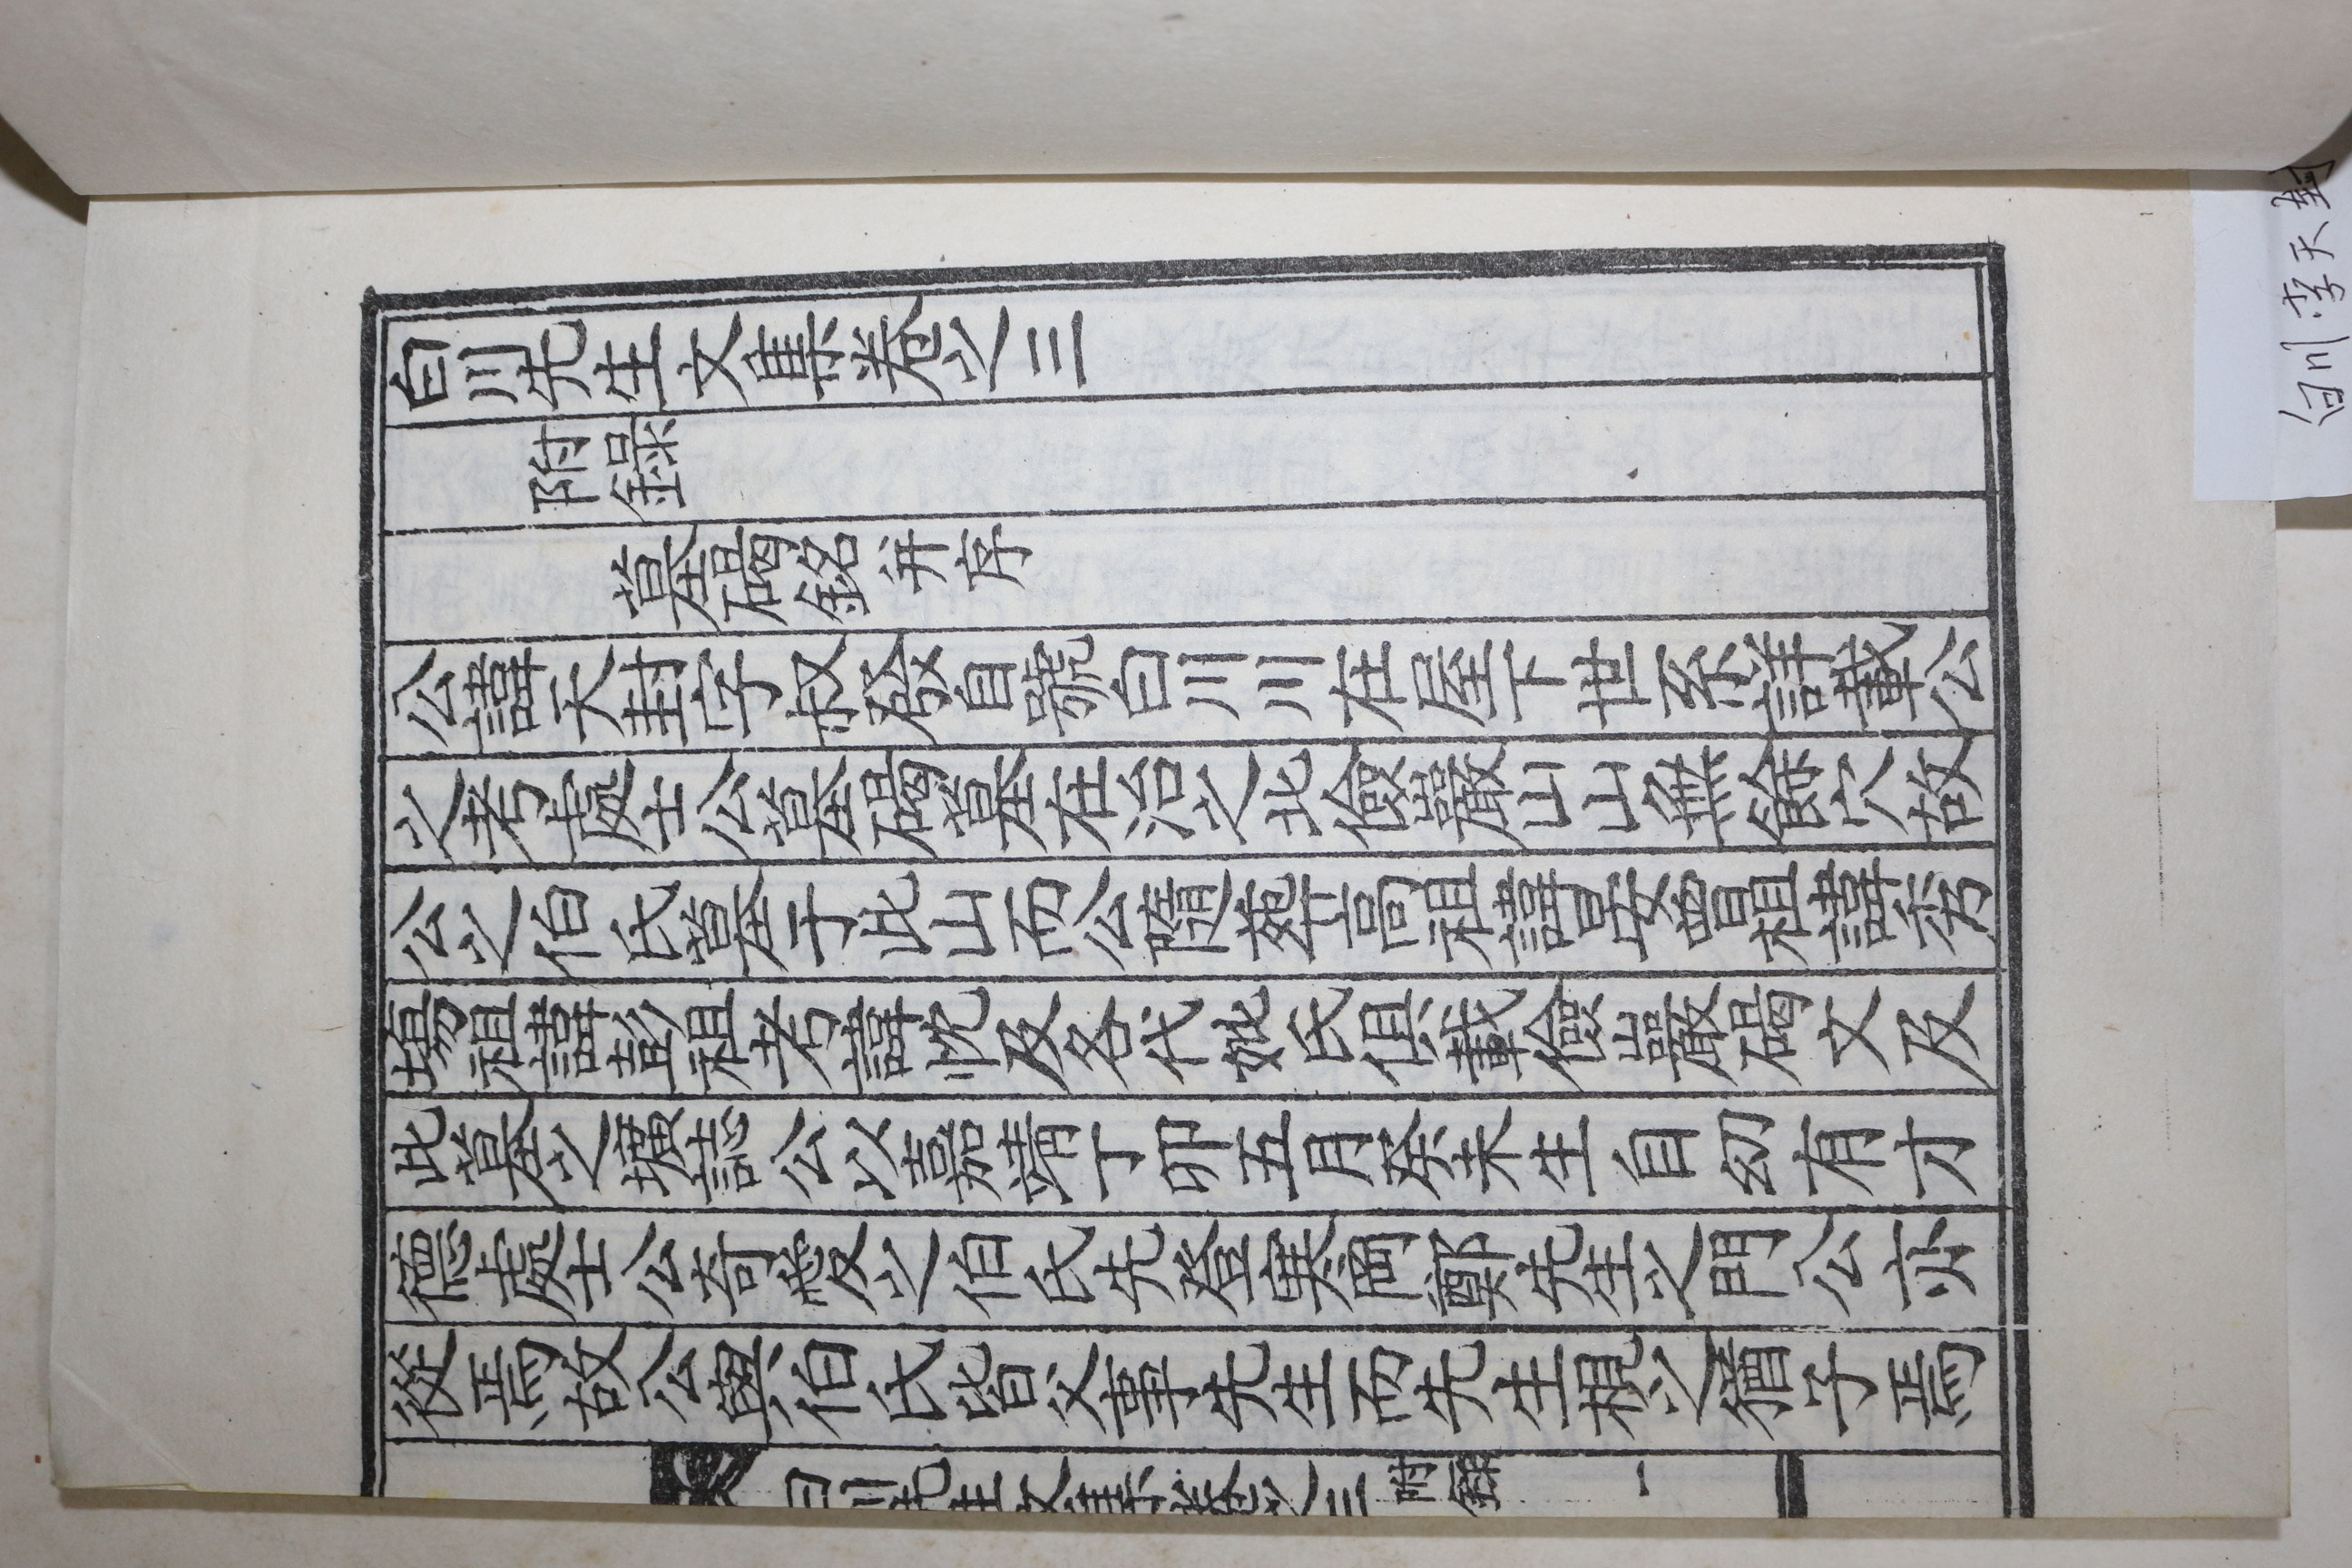 白川先生文集卷之三
附錄
墓碣銘并序
公諱天封字叔發自號白川川在屋下世系詳載公
之考處士公墓碣墓在治之北儉巖山山無餘穴故
公之伯氏墓于此山而公隨葬高祖諱晏曾祖諱秀
塲祖諱彭祖考諱忱及各代妣氏俱載儉巖碣文及
此墓之壙誌公以嘉靖丁卯五月癸未生自幼有才
德處士公奇愛之伯氏先登寒岡鄭先生之門公亦
從焉故公與伯氏皆父事先生而先生視之猶子焉
白川先生文集卷之三 附錄 一
白川 李天封